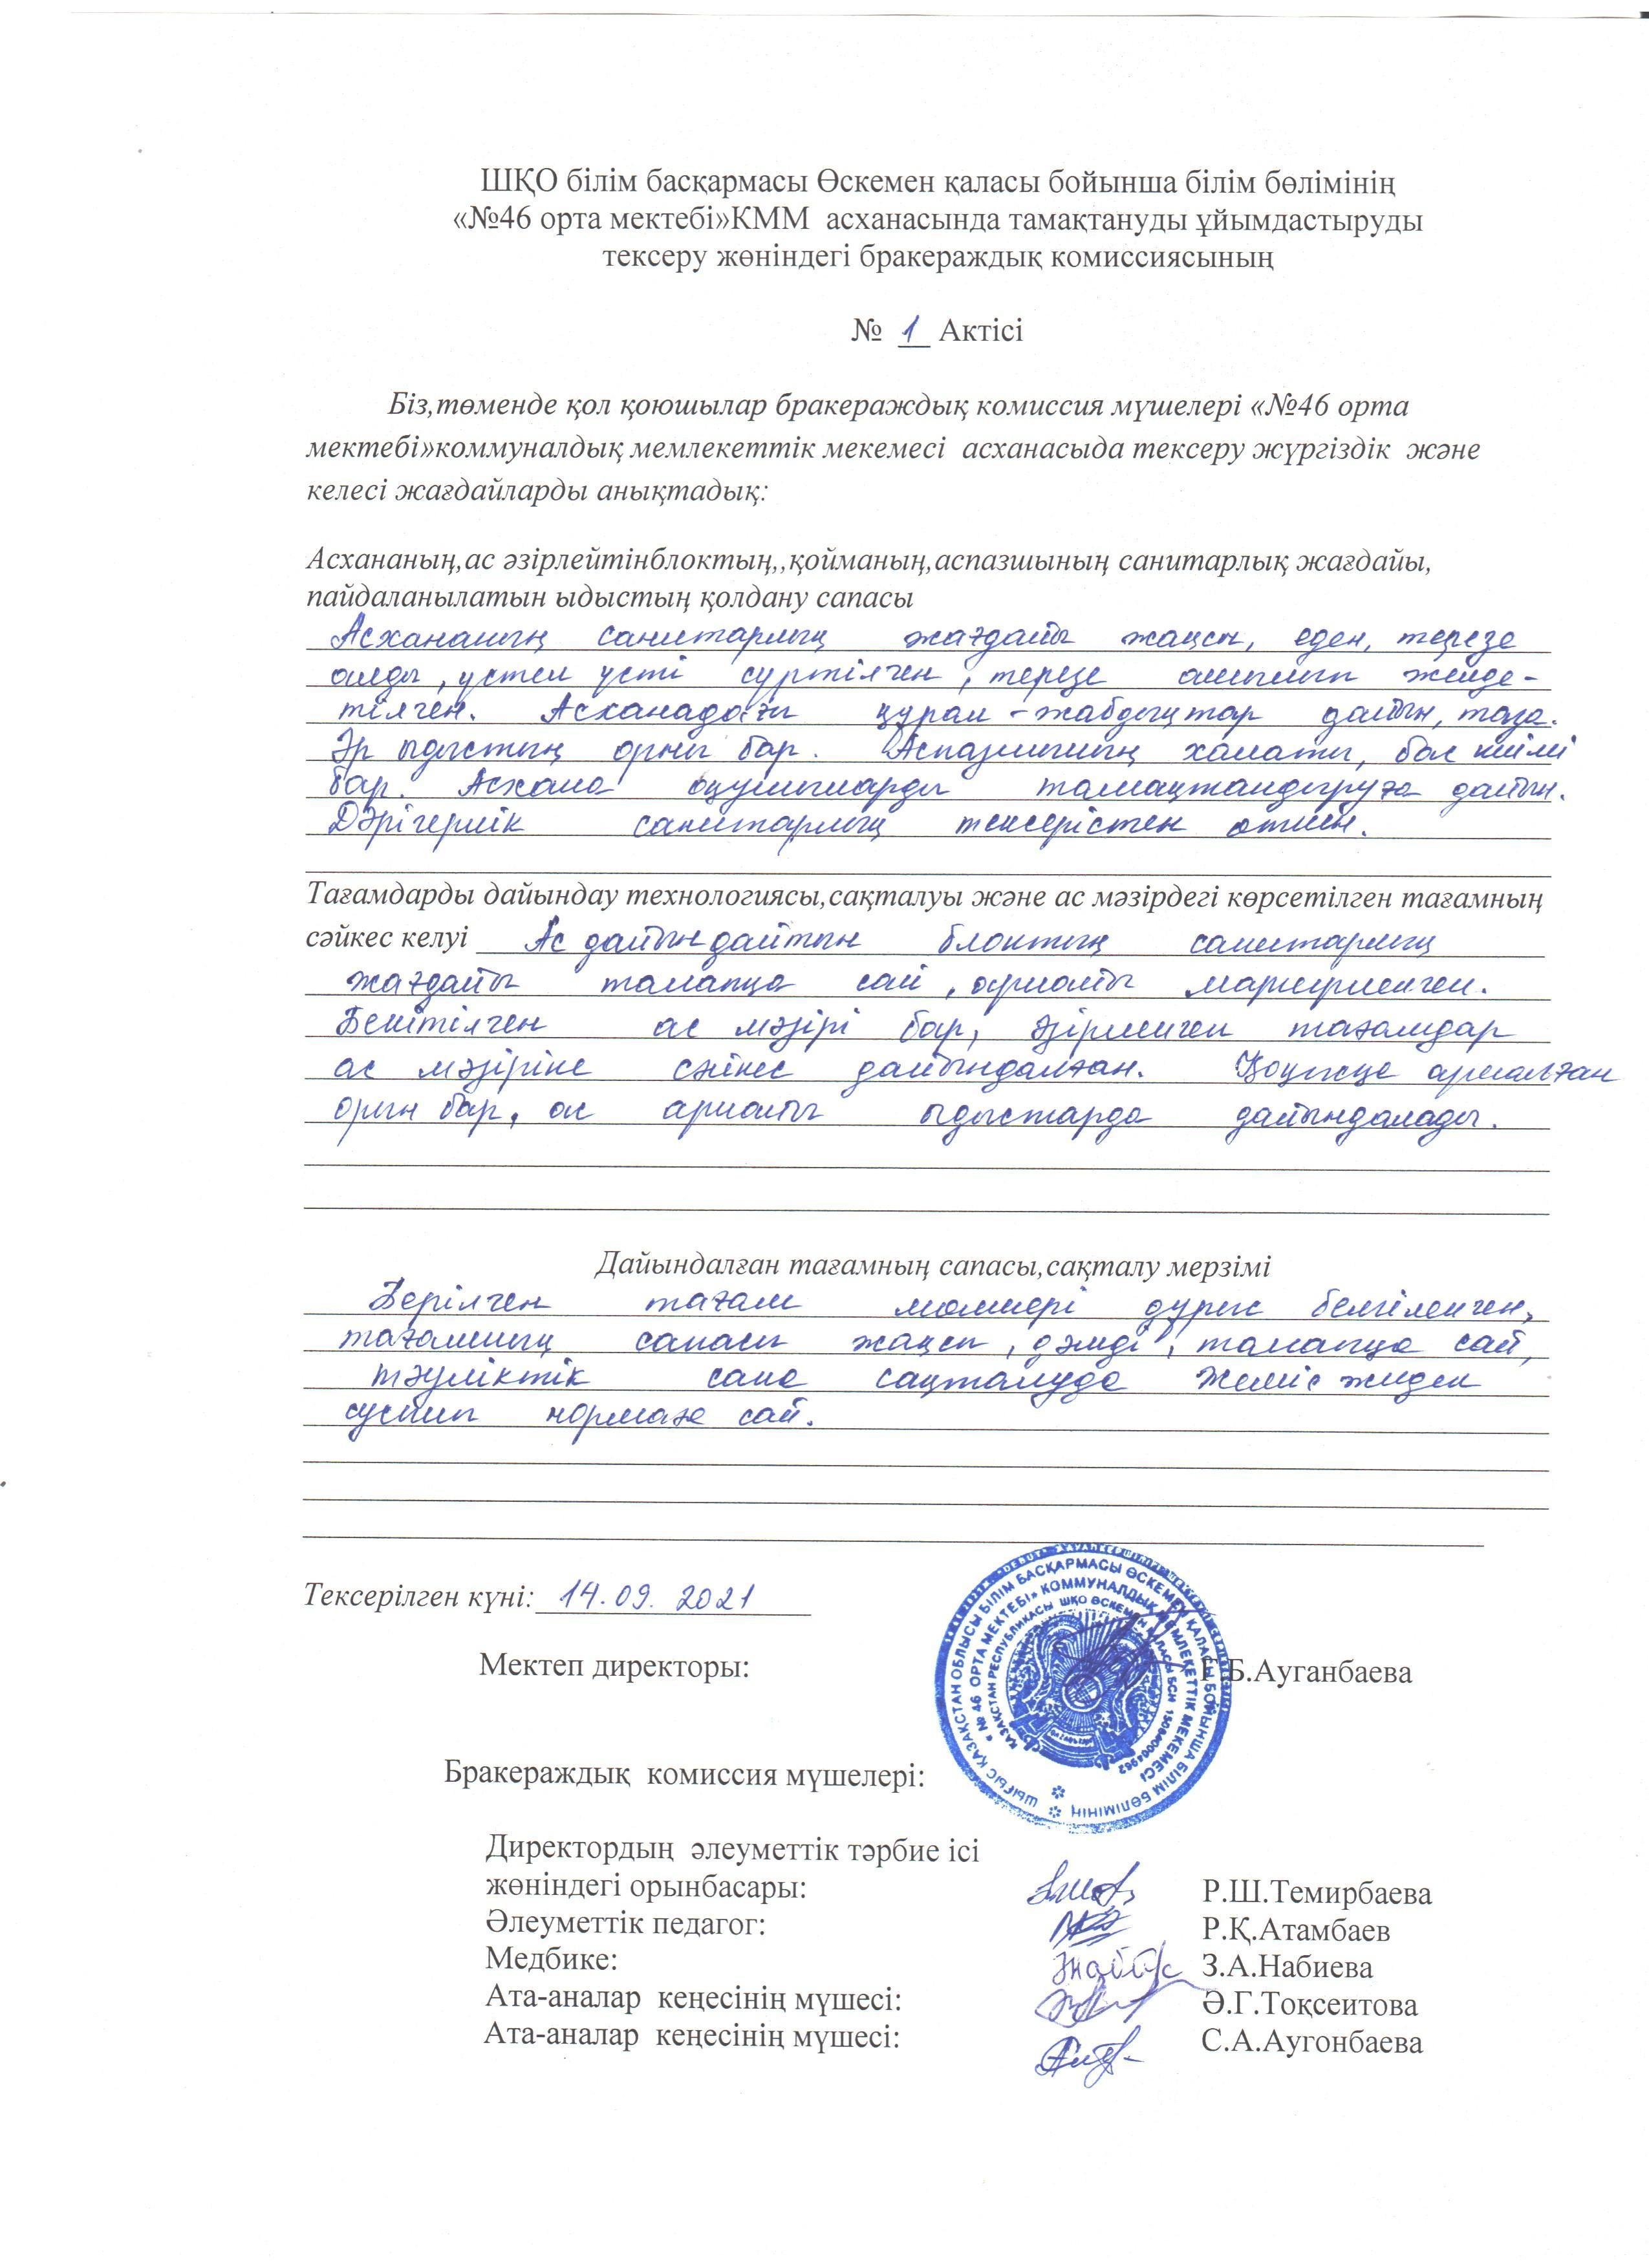 ШҚО білім басқармасы Өскемен қаласы бойынша білім бөлімінің
«№46 орта мектебі»КММ асханасында тамақтануды ұйымдастыруды
тексеру жөніндегі бракераждық комиссиясының
№ 1 Актісі
Біз,төменде қол қоюшылар бракераждық комиссия мүшелері «№46 орта
мектебі»коммуналдық мемлекеттік мекемесі асханасыда тексеру жүргіздік және
келесі жағдайларды анықтадық:
Асхананың,ас әзірлейтінблоктың,,қойманың,аспазшының санитарлық жағдайы,
пайдаланылатын ыдыстың қолдану сапасы
Асхананың санитарлық жағдайы жақсы, еден, терезе
алды, үстел үсті сүртілген, терезе ашылып желде-
тілген. Асханадағы құрал-жабдықтар дайын, таза.
Әр ыдыстың орны бар. Аспазшының халаты, бас киімі
бар. Асхана оқушыларды тамақтандыруға дайын.
Дәрігерлік санитарлық тексерістен өткен.
Тағамдарды дайындау технологиясы,сақталуы және ас мәзірдегі көрсетілген тағамның
сәйкес келуі Ас дайындайтын блоктың санитарлық
жағдайы талапқа сай, арнайы маркирленген.
Бекітілген ас мәзірі бар, әзірленген тағамдар
ас мәзіріне сәйкес дайындалған. Қоқысқа арналған
орын бар, ас арнайы ыдыстарда дайындалады.
Дайындалған тағамның сапасы,сақталу мерзімі
Берілген тағам мөлшері дұрыс белгіленген,
тағамның сапасы жақсы, дәмді, талапқа сай,
тәуліктік сапа сақталуда Жеміс жидек
сусыны нормаға сай.
Тексерілген күні: 14.09.2021
Мектеп директоры: Г.Б.Ауганбаева
ШЫҒЫС ҚАЗАҚСТАН ОБЛЫСЫ БІЛІМ БАСҚАРМАСЫ ӨСКЕМЕН ҚАЛАСЫ БОЙЫНША БІЛІМ БӨЛІМІНІҢ
«№ 46 ОРТА МЕКТЕБІ» КОММУНАЛДЫҚ МЕМЛЕКЕТТІК МЕКЕМЕСІ
ҚАЗАҚСТАН РЕСПУБЛИКАСЫ ШҚО ӨСКЕМЕН ҚАЛАСЫ БСН
Бракераждық комиссия мүшелері:
Директордың әлеуметтік тәрбие ісі
жөніндегі орынбасары: Р.Ш.Темирбаева
Әлеуметтік педагог: Р.Қ.Атамбаев
Медбике: З.А.Набиева
Ата-аналар кеңесінің мүшесі: Ә.Г.Тоқсеитова
Ата-аналар кеңесінің мүшесі: С.А.Аугонбаева